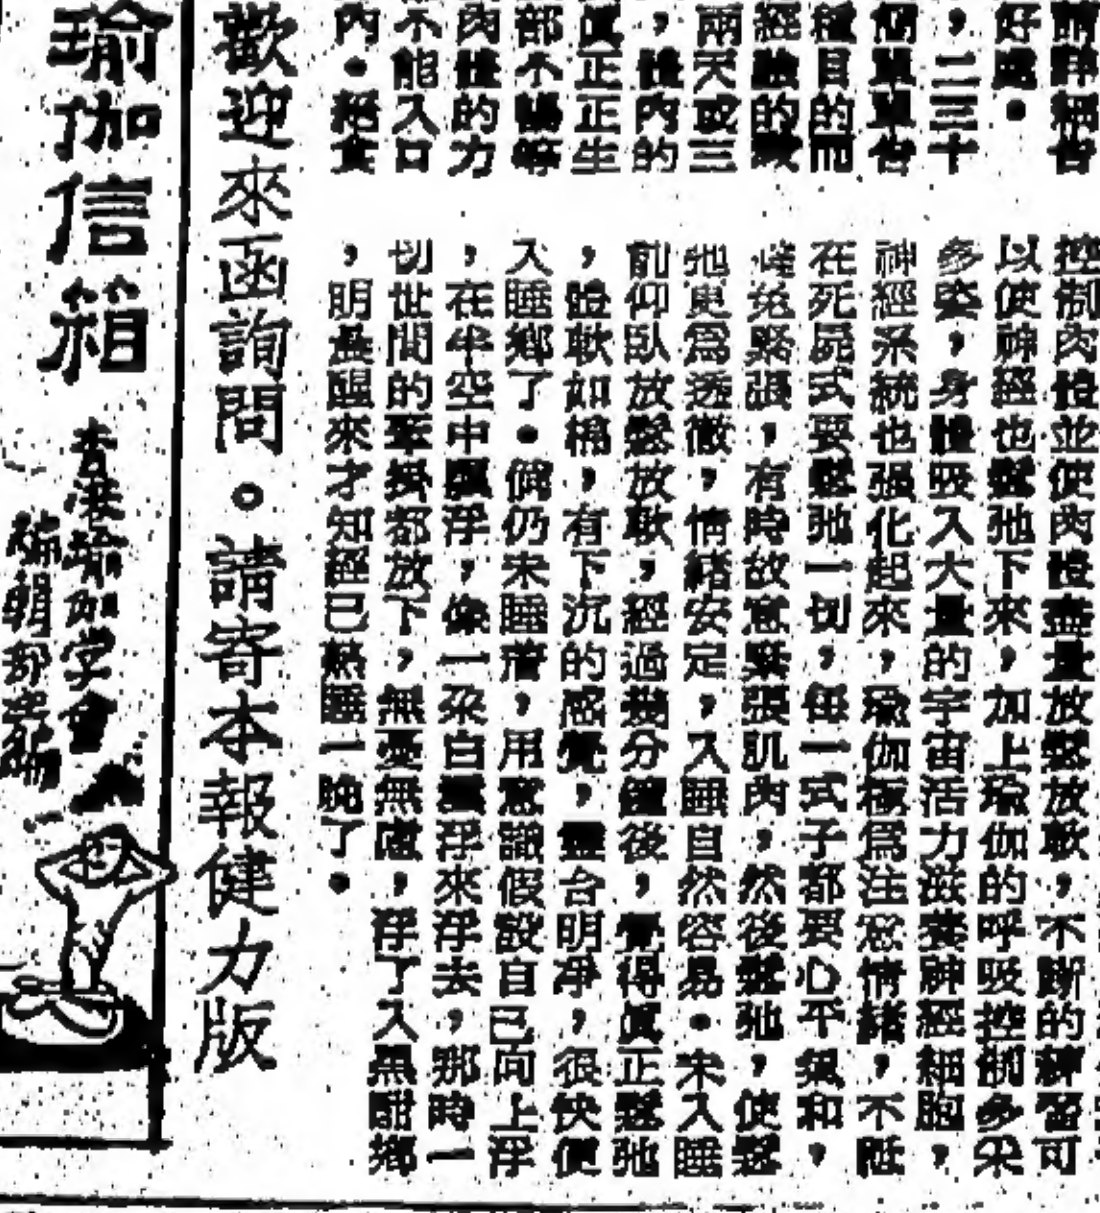 請詳細告
好處。
，二三十
個單單告
種目的而
經驗的或
兩天或三
，體內的
眞正正生
部不暢等
肉體的力
不能入口
內。
控制肉體並使肉體盡量放鬆放軟，不斷的練習可
以使神經也鬆弛下來，加上瑜伽的呼吸控制多采
多姿，身體吸入大量的宇宙活力滋養神經細胞，
神經系統也强化起來，瑜伽極爲注意情緒，不但
在死屍式要鬆弛一切，每一式子都要心平氣和，
避免緊張，有時故意緊張肌肉，然後鬆弛，使鬆
弛更爲透徹，情緒安定，入睡自然容易。未入睡
前仰臥放鬆放軟，經過幾分鐘後，覺得眞正鬆弛
，體軟如棉，有下沉的感覺，靈台明凈，很快便
入睡鄉了。倘仍未睡着，用意識假設自己向上浮
，在半空中飄浮，像一朶白雲浮來浮去，那時一
切世間的牽掛都放下，無憂無慮，浮了入黑甜鄉
，明晨醒來才知經已熟睡一晚了。
歡迎來函詢問。請寄本報健力版
瑜伽信箱
香港瑜伽学會
編輯